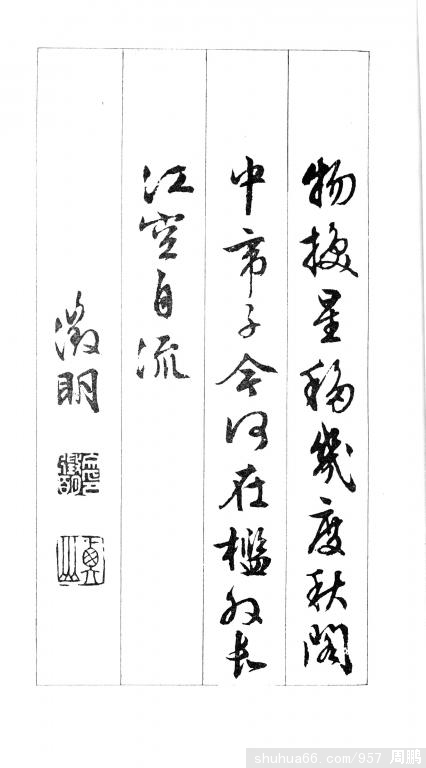 物換星移幾度秋閣
中帝子今何在檻外長
江空自流
徵明
shuhua66.com/957 周鹏